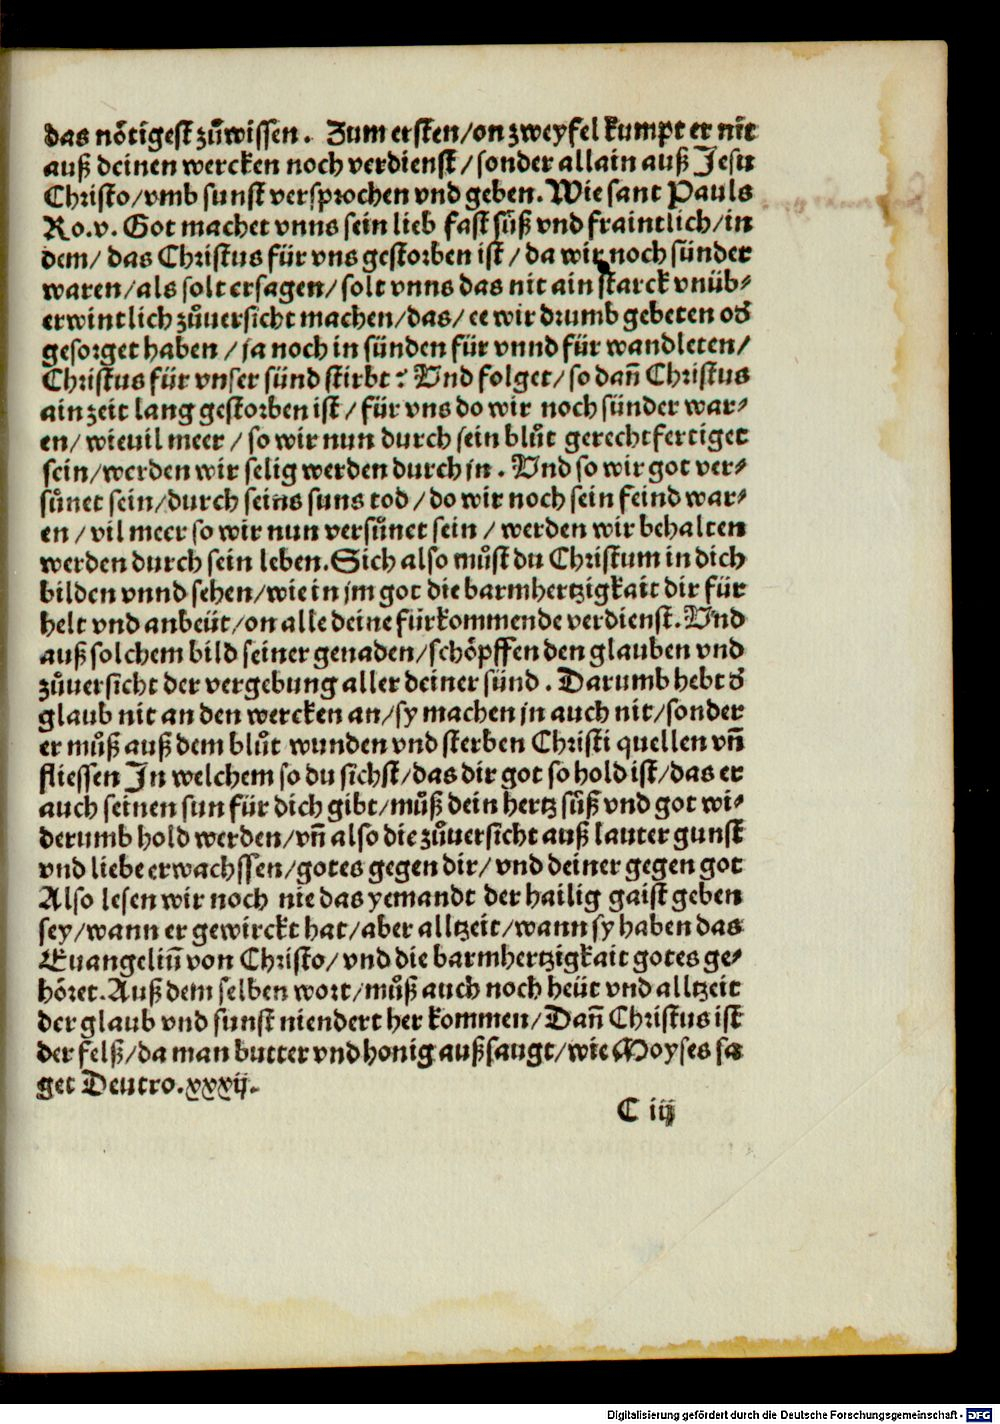 das nötigest zůwissen. Zum ersten/on zweyfel kumpt er nit
auß deinen wercken noch verdienst/sonder allain auß Jesu
Christo/vmb sunst versprochen vnd geben. Wie sant Pauls
Ro.v. Got machet vnns sein lieb fast süß vnd fraintlich/in
dem/ das Christus für vns gestorben ist/da wir noch sünder
waren/als solt er sagen/solt vnns das nit ain starck vnüb-
erwintlich zůuersicht machen/das/ee wir drumb gebeten od̕
gesorget haben/ja noch in sünden für vnnd für wandleten/
Christus für vnser sünd stirbt: Vnd folget/so dañ Christus
ain zeit lang gestorben ist/für vns do wir noch sünder war-
en/wieuil meer/so wir nun durch sein blůt gerechtfertiget
sein/werden wir selig werden durch jn. Vnd so wir got ver-
sůnet sein/durch seins suns tod/do wir noch sein feind war-
en/vil meer so wir nun versůnet sein/werden wir behalten
werden durch sein leben. Sich also můst du Christum in dich
bilden vnnd sehen/wie in jm got die barmhertzigkait dir für
helt vnd anbeüt/on alle deine fürkommende verdienst. Vnd
auß solchem bild seiner genaden/schöpffen den glauben vnd
zůuersicht der vergebung aller deiner sünd. Darumb hebt d̕
glaub nit an den wercken an/sy machen jn auch nit/sonder
er můß auß dem blůt wunden vnd sterben Christi quellen vñ
fliessen In welchem so du sichst/das dir got so hold ist/das er
auch seinen sun für dich gibt/můß dein hertz sůß vnd got wi-
derumb hold werden/vñ also die zůuersicht auß lauter gunst
vnd liebe erwachssen/gotes gegen dir/vnd deiner gegen got
Also lesen wir noch nie das yemandt der hailig gaist geben
sey/wann er gewirckt hat/aber alltzeit/wann sy haben das
Euangeliũ von Christo/vnd die barmhertzigkait gotes ge-
höret. Auß dem selben wort/můß auch noch heüt vnd alltzeit
der glaub vnd sunst niendert her kommen/Dañ Christus ist
der felß/da man butter vnd honig außsaugt/wie Moyses sa
get Deutro.xxxij.
C iij
Digitalisierung gefördert durch die Deutsche Forschungsgemeinschaft - DFG